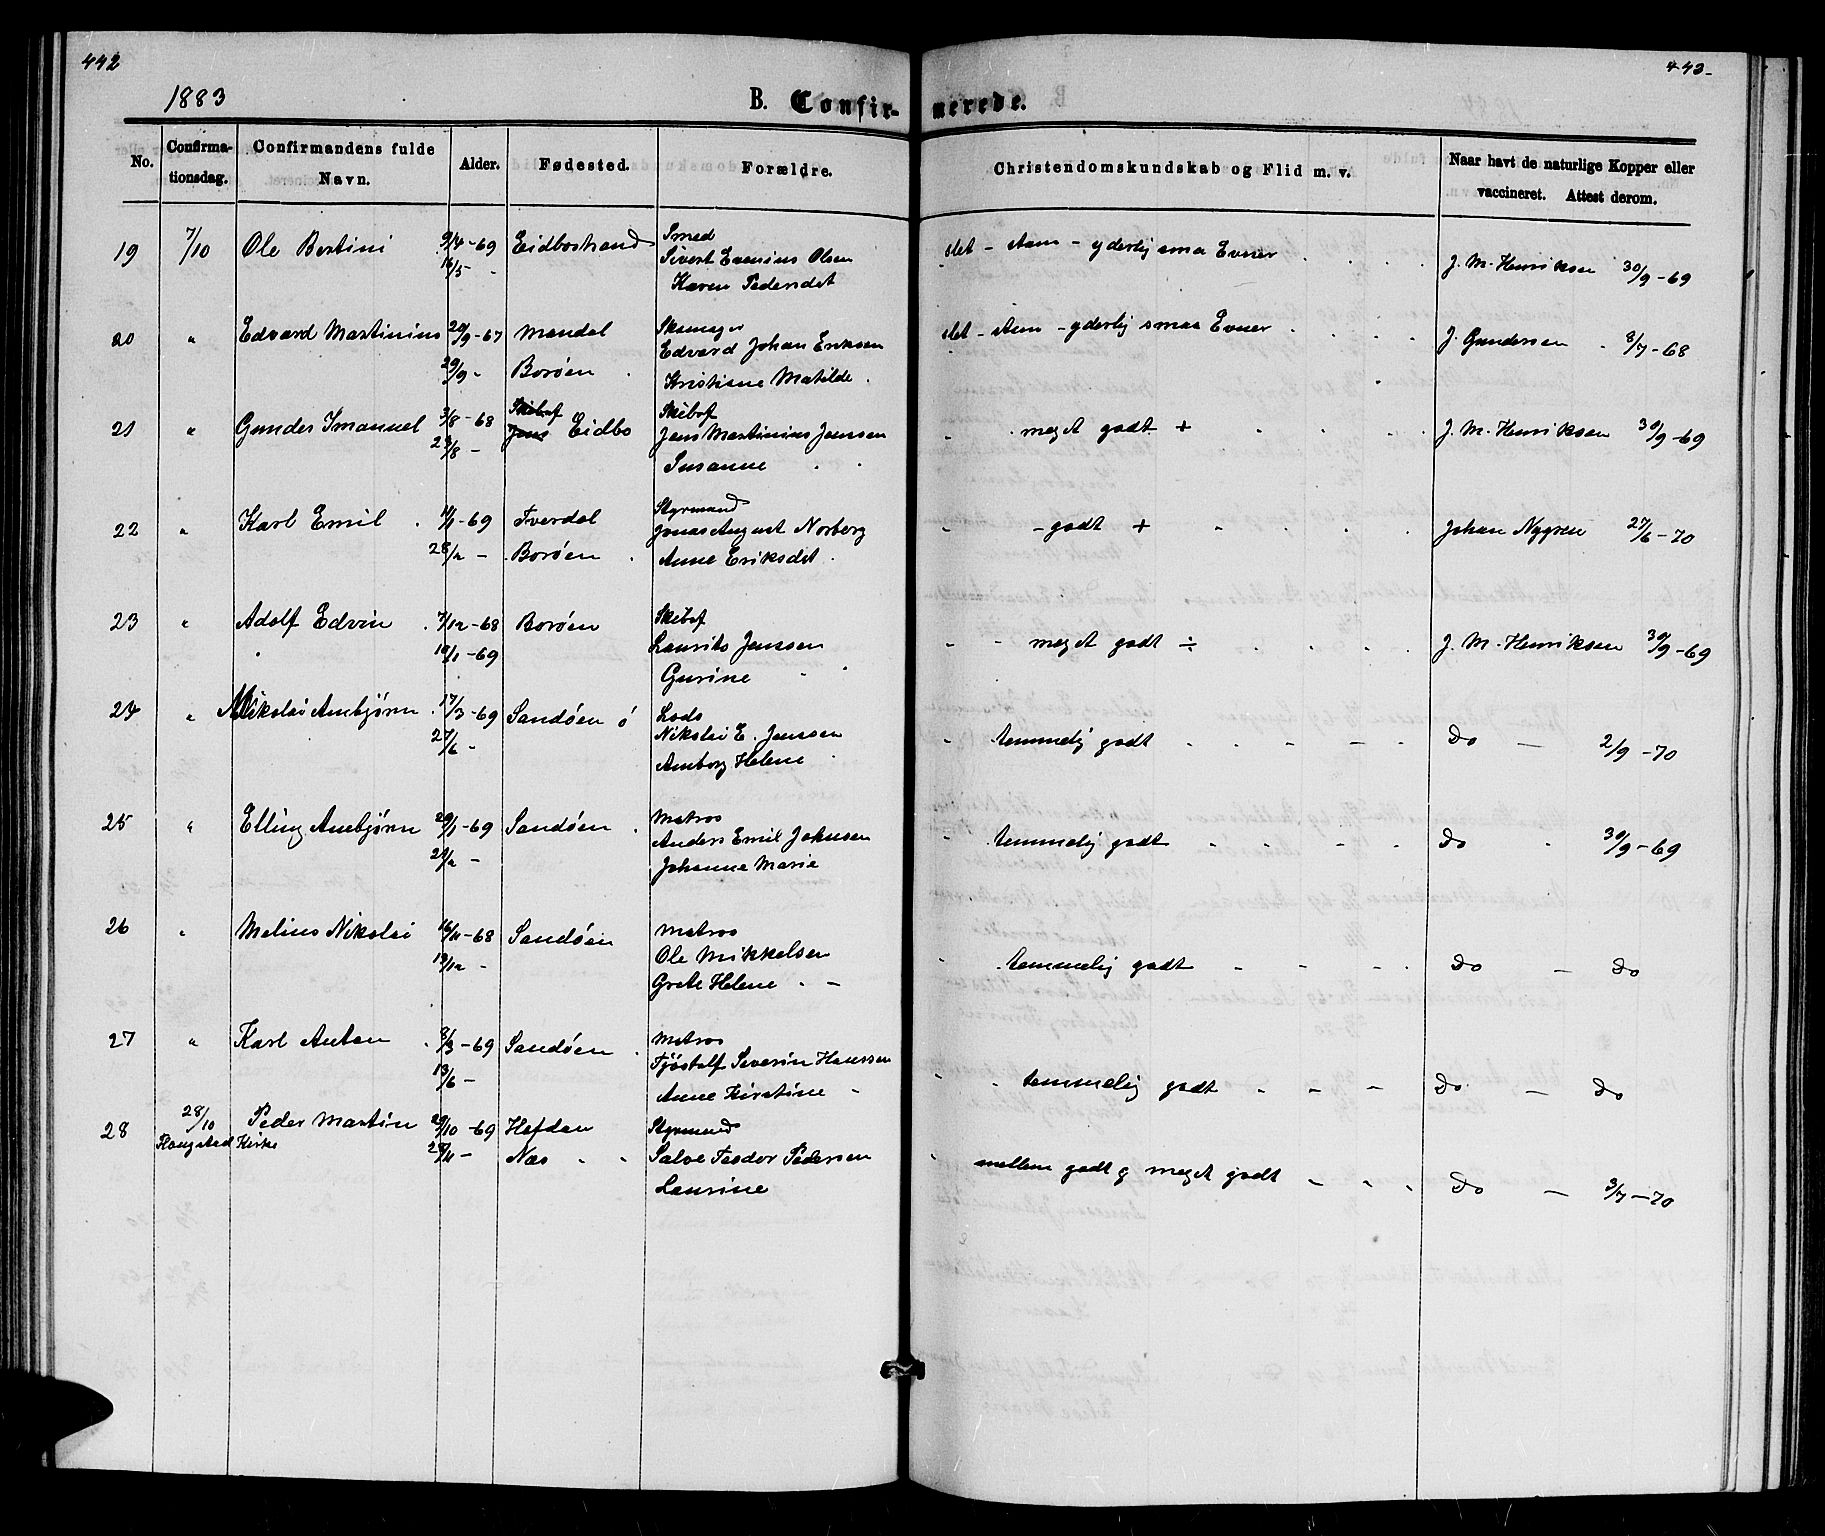 442
443-
1883
B. Confir-
merede.
No.
Confirma-
tionsdag.
Confirmandens fulde
Navn.
Alder.
Fødested.
Forældre.
Christendomskundskab og Flid m. v.
Naar havt de naturlige Kopper eller
vaccineret. Attest derom.
19 7/10 Ole Bertini 9/4-69 Eidbostrand Smed slet - yderlig smaa Evner J. M. Henriksen 30/9-69
16/5 - Sivert Evenius Olsen
Karen Pedersdt
20 " Edvard Martinius 20/9-67 Mandal slet - yderlig smaa Evner J. Gundersen 8/7-68
29/9 - Borøen Edvard Johan Eriksen
Kristiane Matilde
21 " Gunder Imanuel 3/8-68 Eidbo Skibsf meget godt + J. M. Henriksen 30/9-69
23/8 - Jens Martinius Jenssen
Susanne
22 " Karl Emil 11/1-69 Tverdal Styrmand - godt + Johan Nygren 27/6-70
28/2 - Borøen Jonas August Norberg
Anne Eriksdt
23 " Adolf Edvin 7/12-68 Borøen Skibsf meget godt ÷ J. M. Henriksen 30/9-69
10/1-69 Laurits Jenssen
Gurine
24 " Nikolai Anebjørn 17/3-69 Sandøen ö Lods temmelig godt Do - 2/9-70
27/6 - Nikolai E. Jenssen
Amborg Helene
25 " Elling Anebjørn 20/1-69 Sandøen Matros temmelig godt Do 30/9-69
21/2 - Anders Emil Johnsen
Johanne Marie
26 " Melius Nikolai 16/11-68 Sandøen Matros temmelig godt Do - Do
13/12 - Ole Mikkelsen
Grete Helene -
27 " Karl Anton 8/3-69 Sandøen Matros temmelig godt Do - Do
13/6 - Tjöstolf Severin Hanssen
Anne Kirstine -
28 28/10 Peder Martin 29/10-69 Hefdan Styrmand mellem godt g meget godt Do - 3/7-70
Flangstad Kirke 28/11 - Næs Salve Teodor Pedersen
Laurine